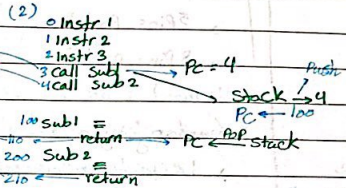 (2)
0 Instr 1
1 Instr 2
2 Instr 3
3 Call Sub1 → PC = 4
4 Call Sub 2
Push
Stack → 4
PC ← 100
100 Sub1 ≡
110 ← return → PC ← POP Stack
200 Sub 2
≡
210 ← return